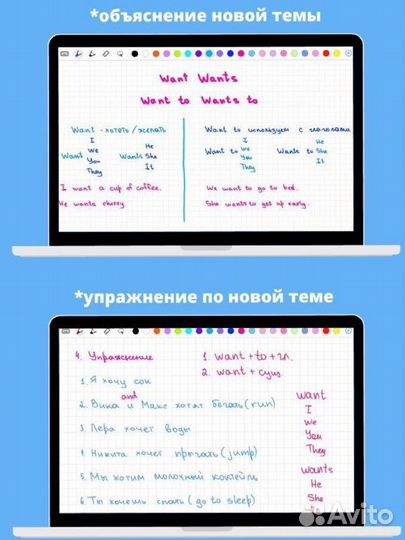 *объяснение новой темы
Want Wants
Want to Wants to
Want - хотеть/желать
I
We
You
They
Want
He
She
It
Wants
I want a cup of coffee.
He wants cherry.
Want to используем с глаголами
I
We
You
They
Want to
He
She
It
Wants to
We want to go to bed.
She wants to get up early.
*упражнение по новой теме
4. Упражнение
1. want + to + гл.
2. want + сущ.
1. Я хочу сок
and
2. Вика и Макс хотят бегать (run)
3. Лера хочет воды
4. Никита хочет прыгать (jump)
5. Мы хотим молочный коктейль
6. Ты хочешь спать (go to sleep)
want
I
We
You
They
wants
He
She
It
Avito